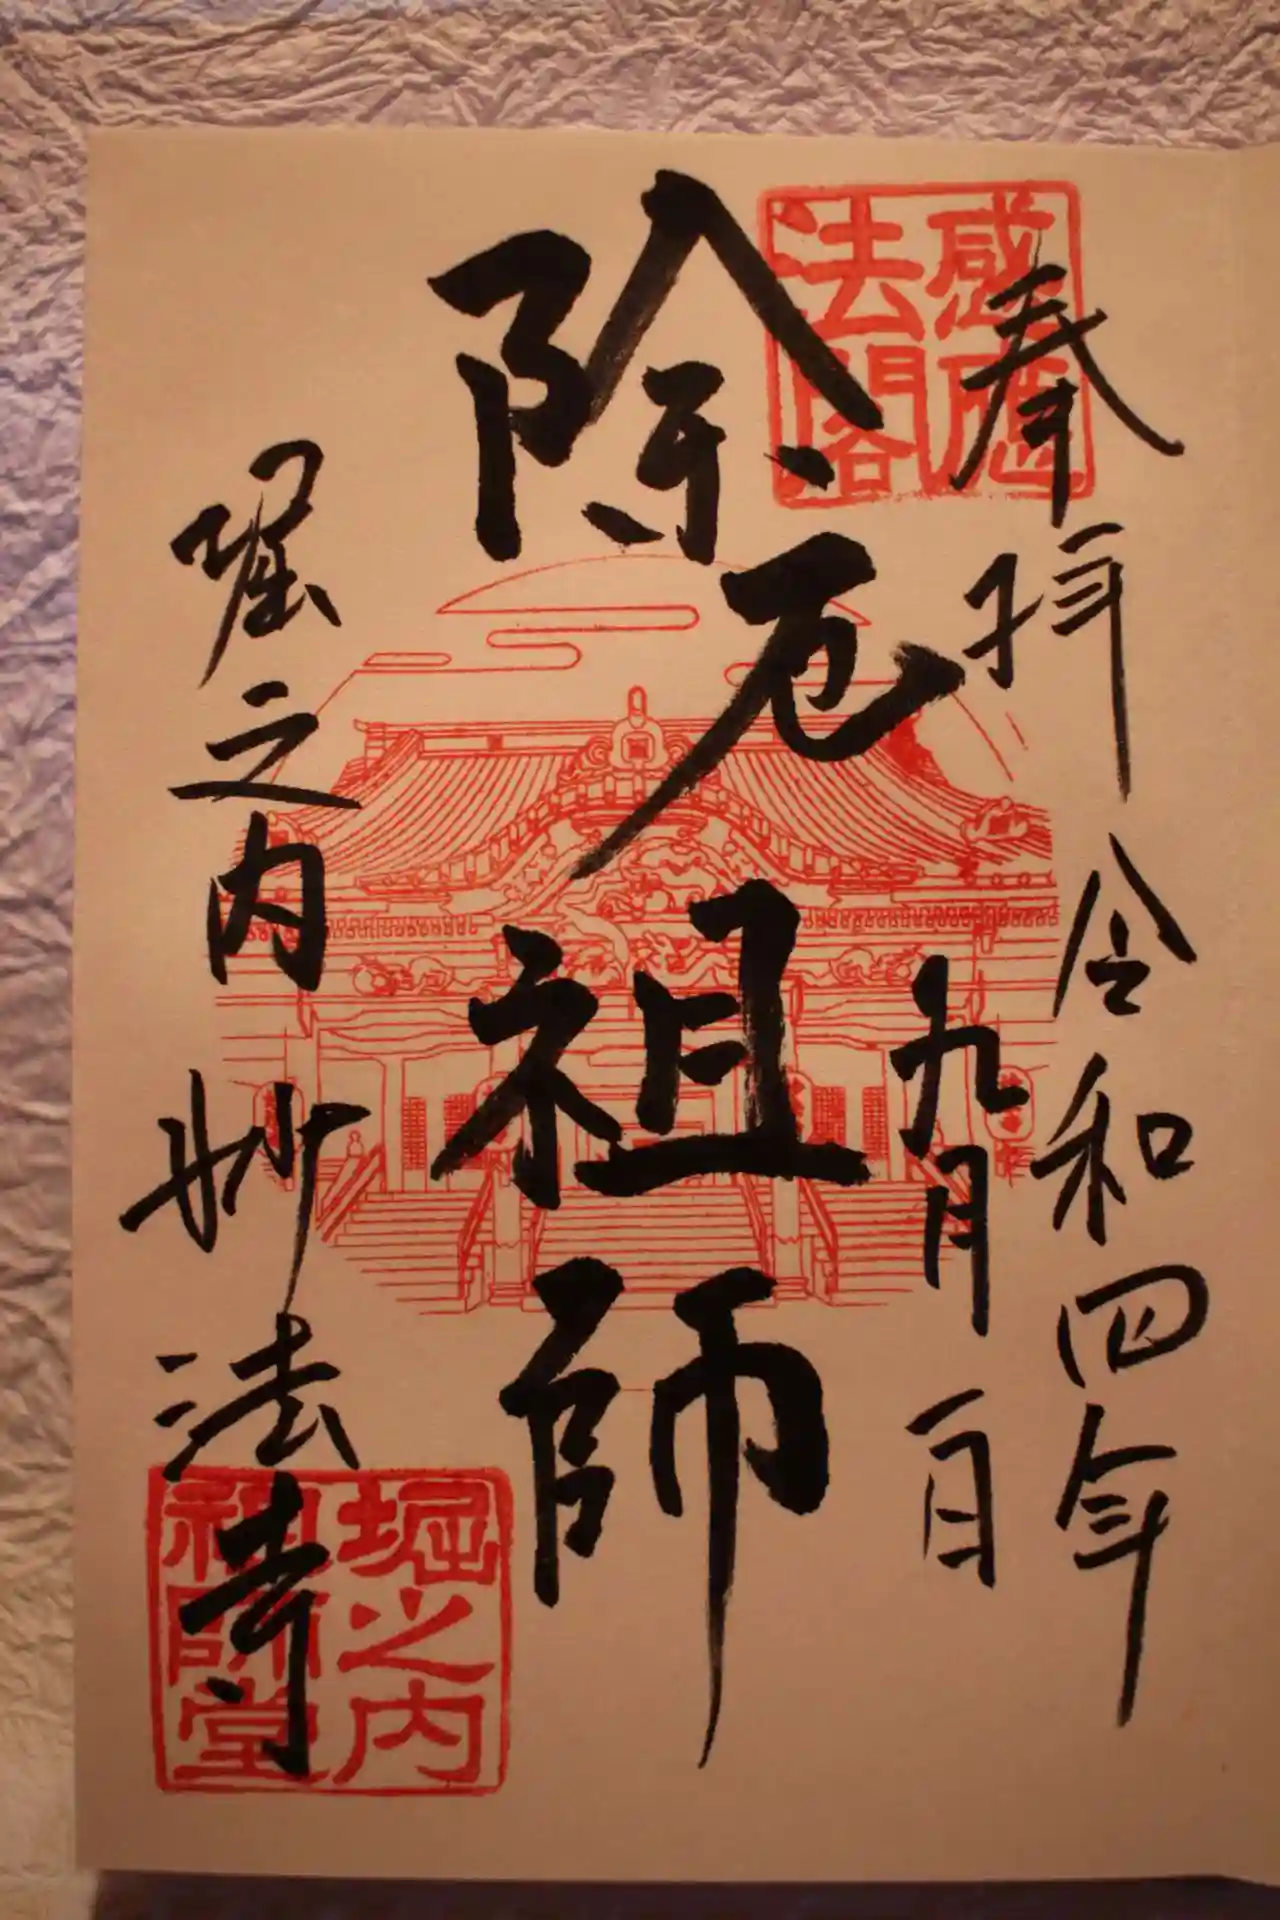 奉拝
令和四年
九月一日
感應
法閣
除厄祖師
堀之内
妙法寺
堀之内
祖師堂